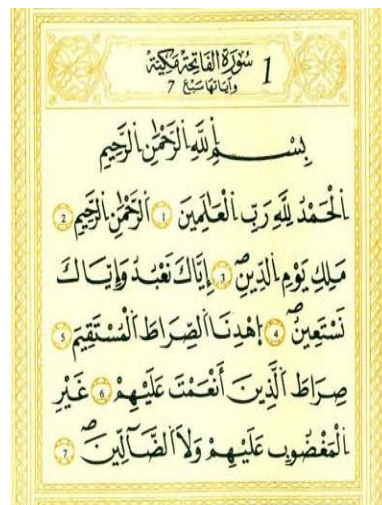 سُورَةُ الفَاتِحَةِ مَكِّيَّةٌ 1
وآيَاتُهَا سَبْعٌ 7
بِسْمِ اِ۬للَّهِ اِ۬لرَّحْمَٰنِ اِ۬لرَّحِيمِ
اِ۬لْحَمْدُ لِلَّهِ رَبِّ اِ۬لْعَالَمِينَ 1 اَ۬لرَّحْمَٰنِ اِ۬لرَّحِيمِ 2
مَلِكِ يَوْمِ اِ۬لدِّينِ 3 إِيَّاكَ نَعْبُدُ وَإِيَّاكَ
نَسْتَعِينُ 4 اِ۪هْدِنَا اَ۬لصِّرَاطَ اَ۬لْمُسْتَقِيمَ 5
صِرَاطَ اَ۬لَّذِينَ أَنْعَمْتَ عَلَيْهِمْ 6 غَيْرِ
اِ۬لْمَغْضُوبِ عَلَيْهِمْ وَلَا اَ۬لضَّآلِّينَ 7